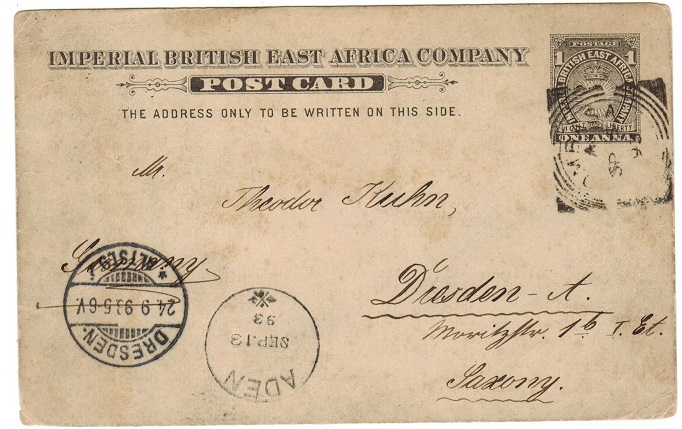 IMPERIAL BRITISH EAST AFRICA COMPANY
POST CARD
THE ADDRESS ONLY TO BE WRITTEN ON THIS SIDE.
POSTAGE
1 1
IMPERIAL BRITISH EAST AFRICA COMPANY
LIGHT AND LIBERTY
ONE ANNA
A
SP
Mr.
Theodor Kuhn,
Germany
Dresden-A.
Moritzstr. 1b I. Et.
Saxony.
DRESDEN
24.9.93.5-6V.
* ALTST. 
ADEN
SEP.13
93